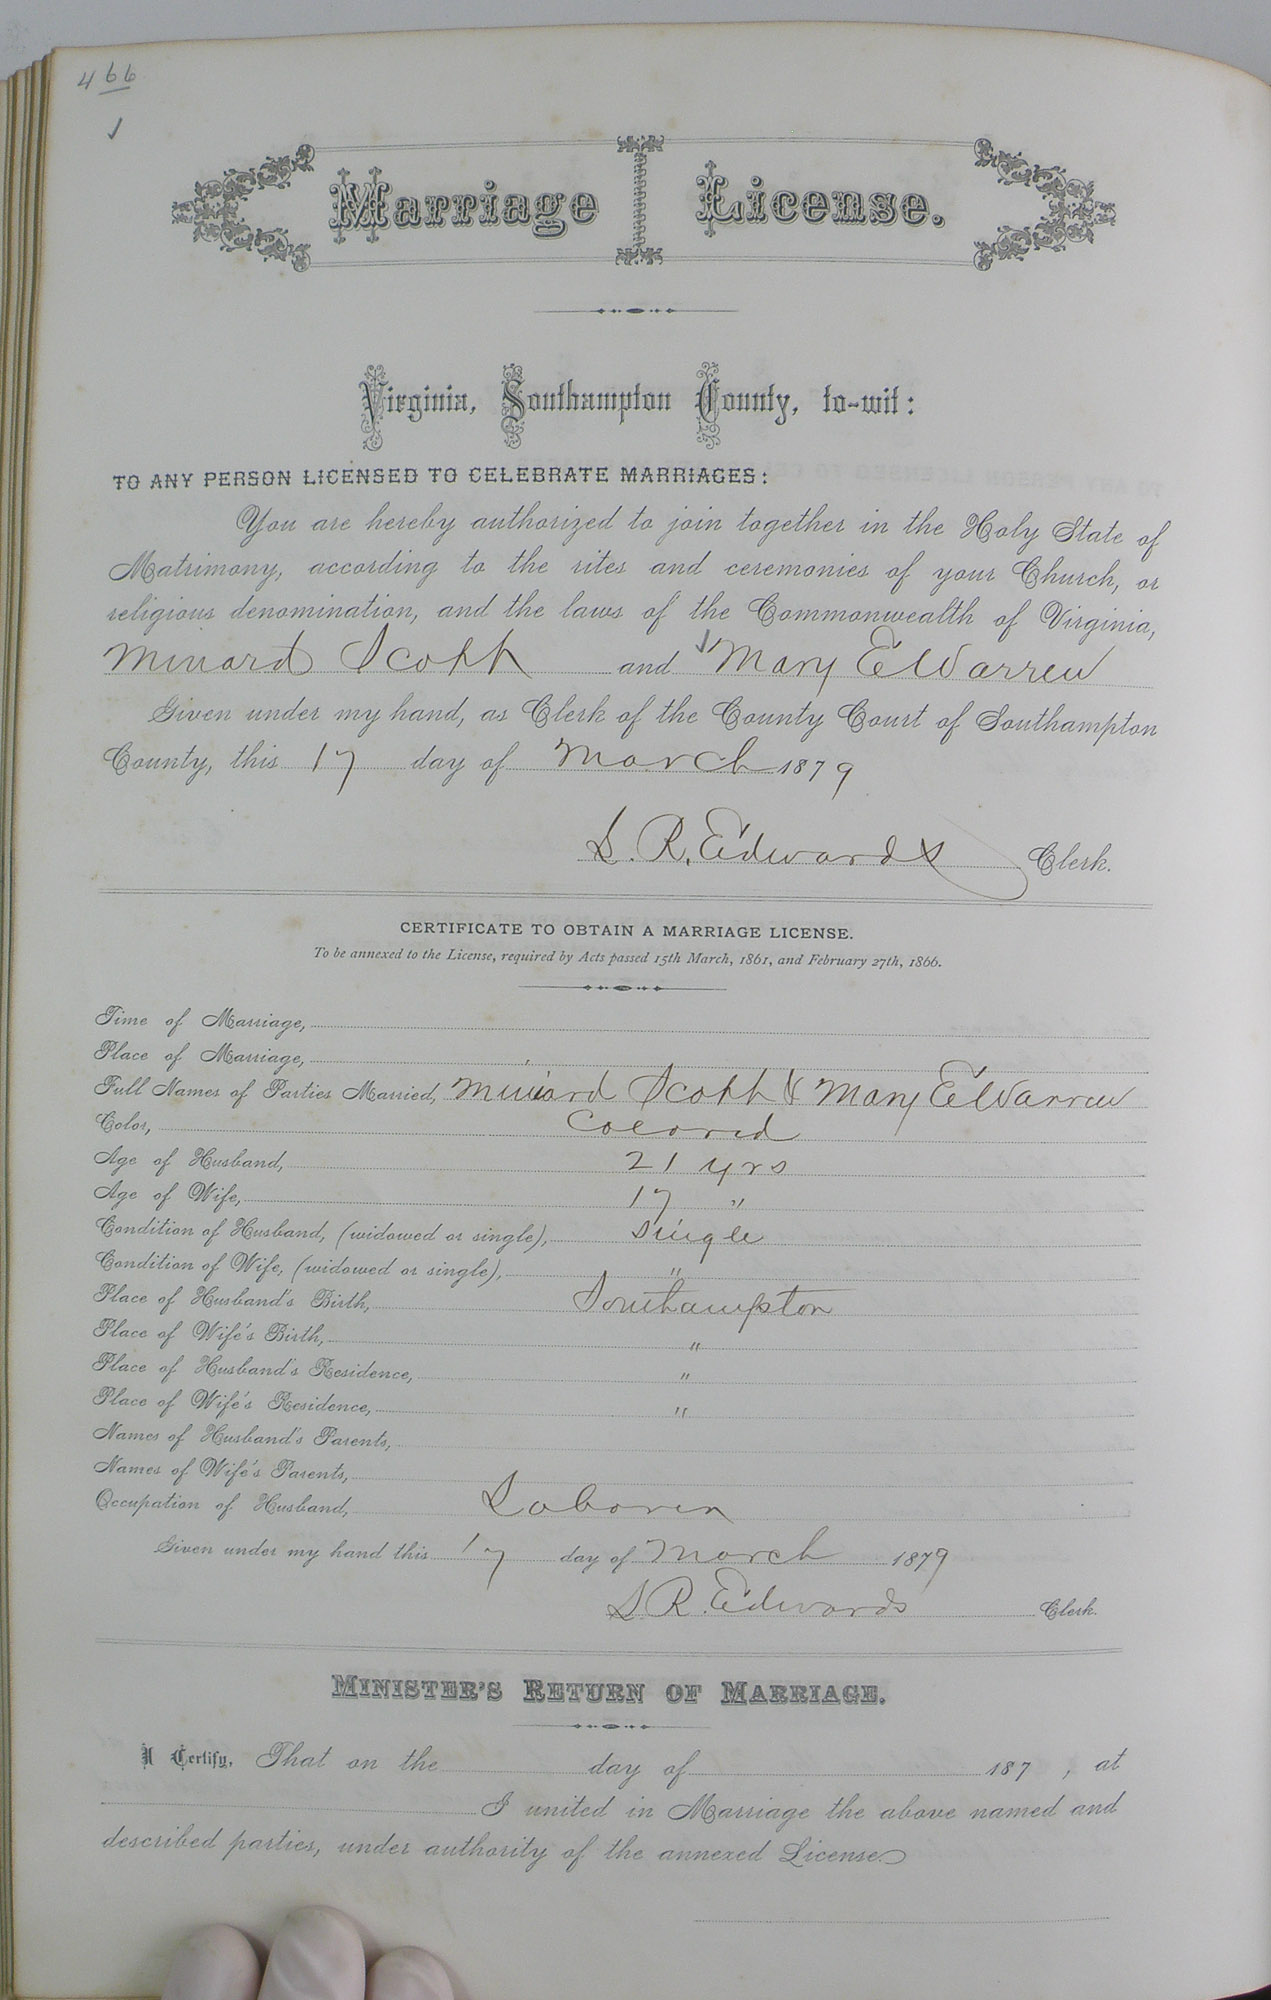 466
Marriage License.
Virginia, Southampton County, to-wit:
TO ANY PERSON LICENSED TO CELEBRATE MARRIAGES:
You are hereby authorized to join together in the Holy State of
Matrimony, according to the rites and ceremonies of your Church, or
religious denomination, and the laws of the Commonwealth of Virginia,
Minard Scott and Mary E Warren
Given under my hand, as Clerk of the County Court of Southampton
County, this 17 day of March 1879
L. R. Edwards Clerk.
CERTIFICATE TO OBTAIN A MARRIAGE LICENSE.
To be annexed to the License, required by Acts passed 15th March, 1861, and February 27th, 1866.
Time of Marriage,
Place of Marriage,
Full Names of Parties Married, Minard Scott & Mary E Warren
Color, Colored
Age of Husband, 21 yrs
Age of Wife, 17 "
Condition of Husband, (widowed or single), Single
Condition of Wife, (widowed or single), "
Place of Husband's Birth, Southampton
Place of Wife's Birth, "
Place of Husband's Residence, "
Place of Wife's Residence, "
Names of Husband's Parents,
Names of Wife's Parents,
Occupation of Husband, Laborer
Given under my hand this 17 day of March 1879
L. R. Edwards Clerk.
MINISTER'S RETURN OF MARRIAGE.
I Certify, That on the day of 187 , at
I united in Marriage the above named and
described parties, under authority of the annexed License.